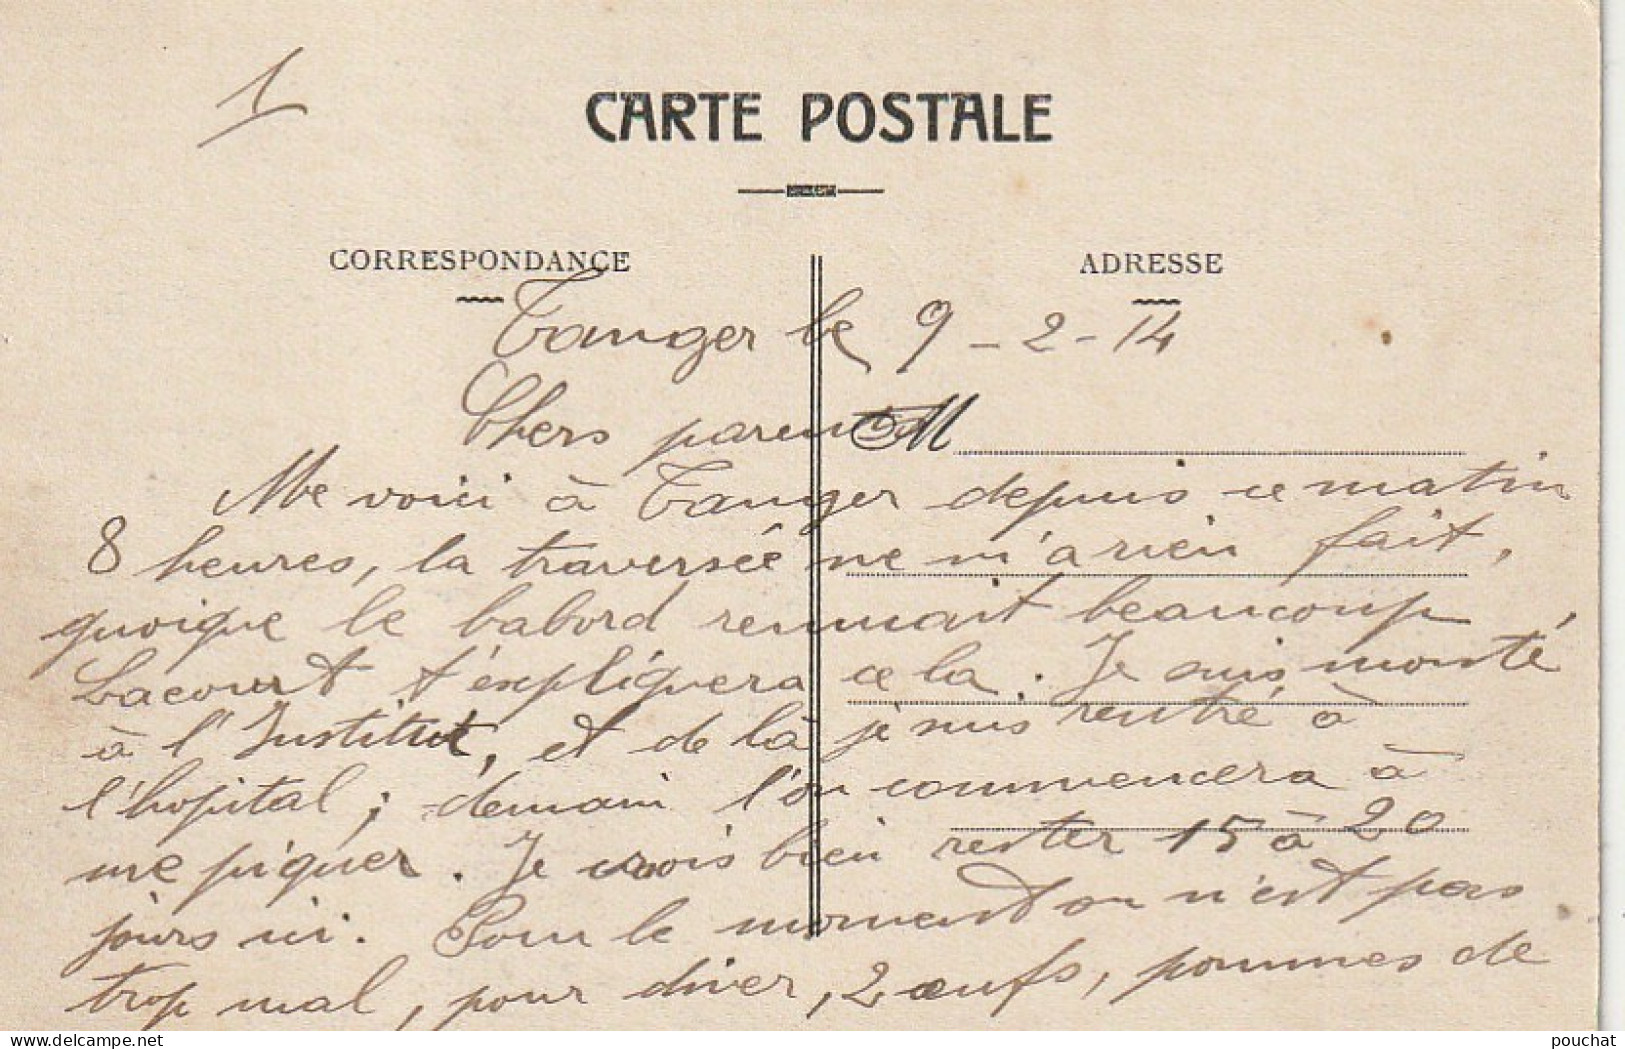 1
CARTE POSTALE
CORRESPONDANCE
ADRESSE
Tanger le 9-2-14
Chers parents
M
Me voici à Tanger depuis ce matin
8 heures, la traversée ne m'a rien fait,
quoique le babord remuait beaucoup,
Lacourt t'expliquera cela. Je suis monté
à l'Institut, et de là je suis rentré à
l'hopital; demain l'on commencera à
me piquer. Je crois bien rester 15 à 20
jours ici. Pour le moment on n'est pas
trop mal, pour diner, 2 œufs, pommes de
www.delcampe.net
pouchat